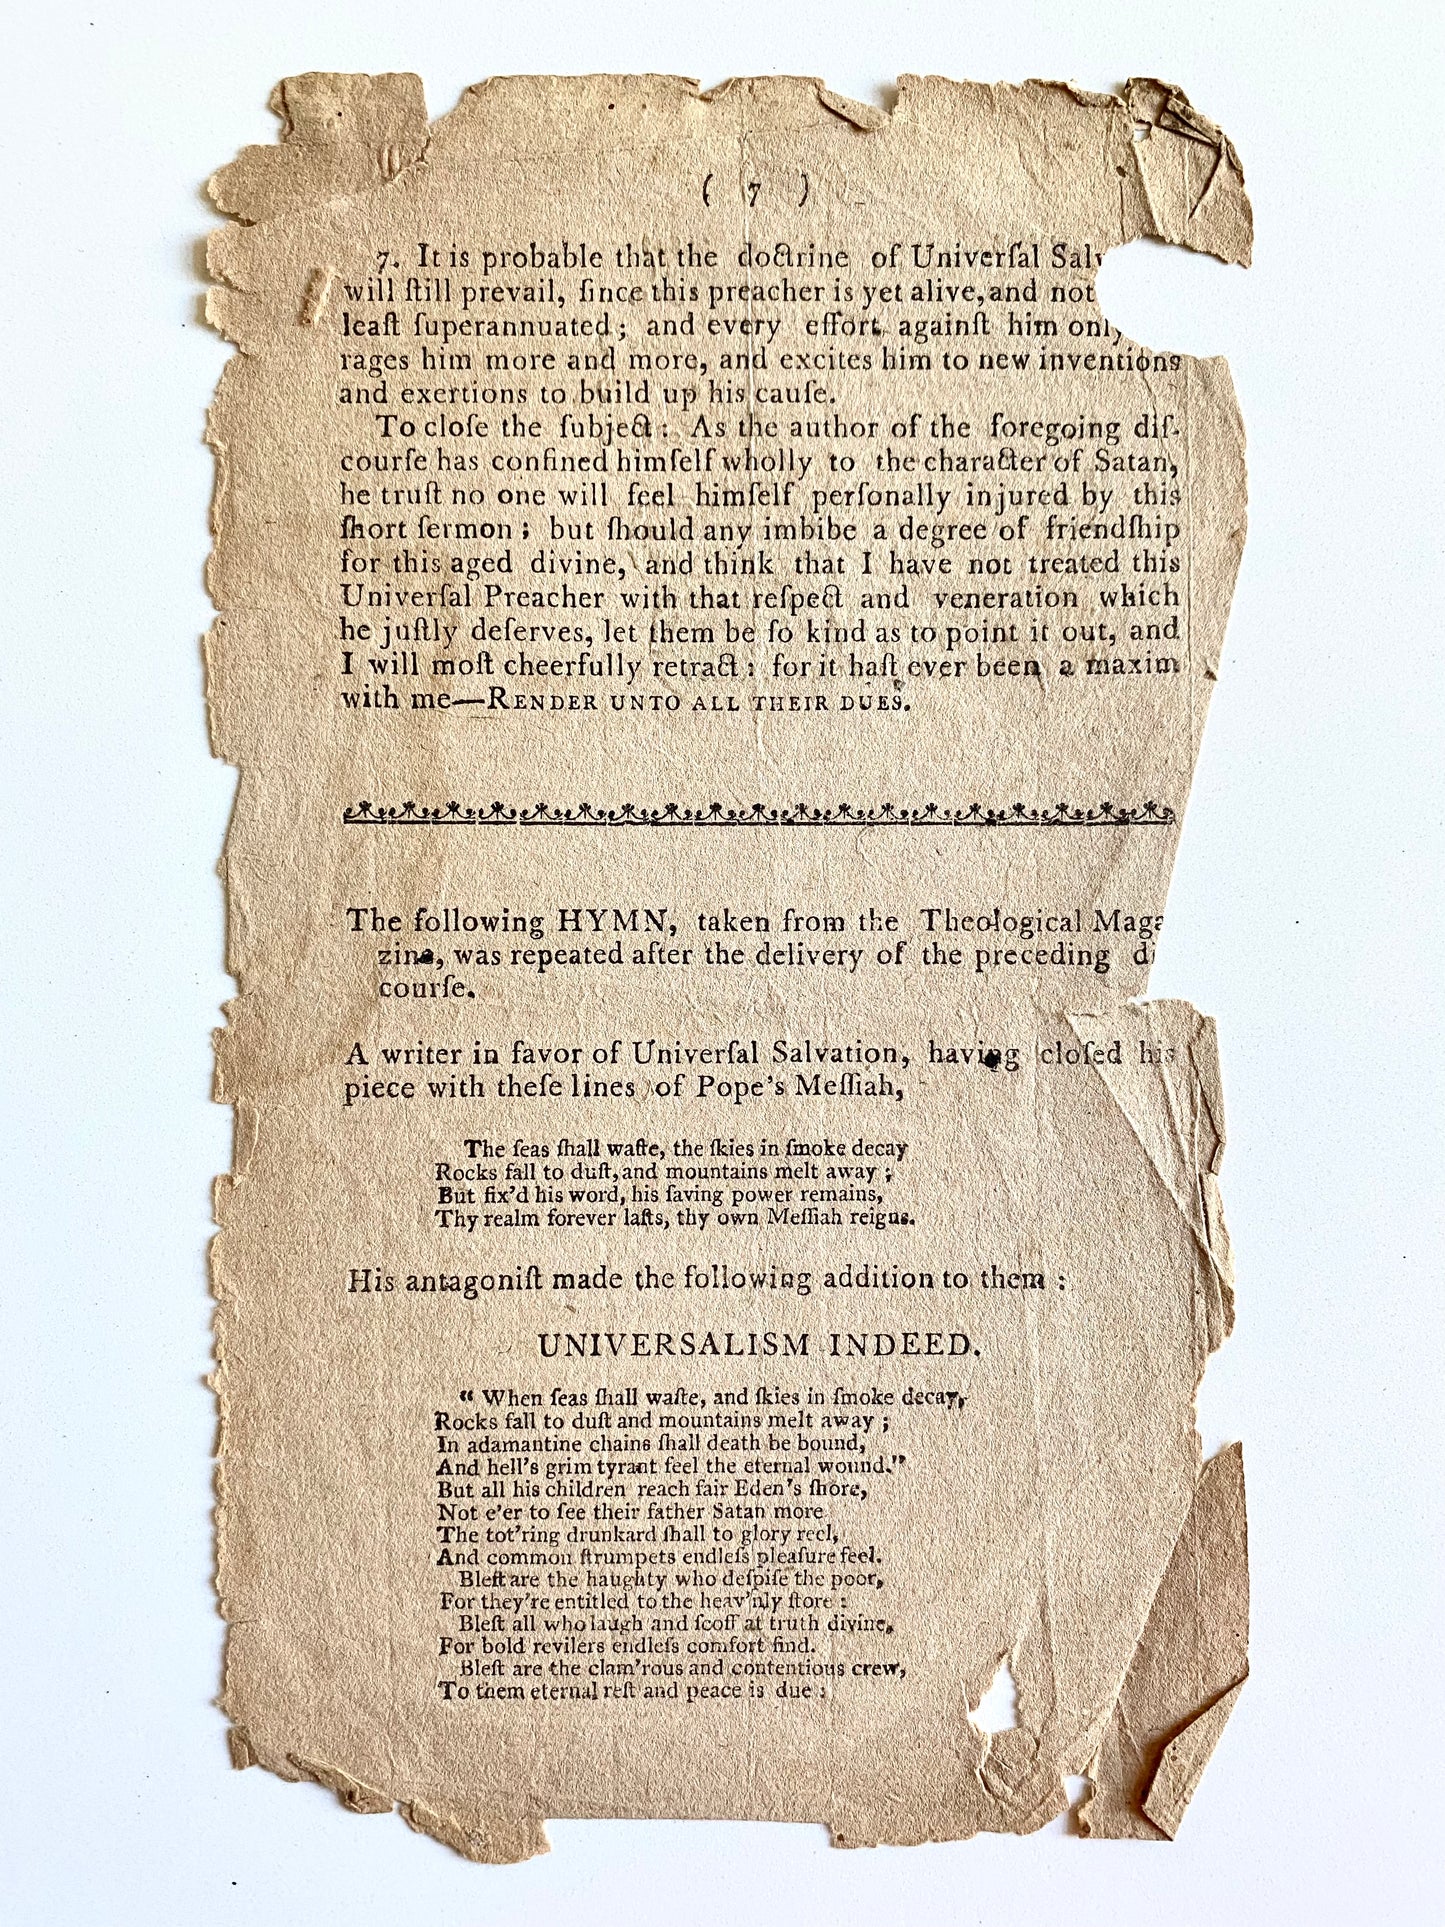 ( 7 )
7. It is probable that the doctrine of Univerſal Salv
will ſtill prevail, ſince this preacher is yet alive, and not
leaſt ſuperannuated ; and every effort againſt him only
rages him more and more, and excites him to new inventions
and exertions to build up his cauſe.
To cloſe the ſubject : As the author of the foregoing diſ-
courſe has confined himſelf wholly to the character of Satan,
he truſt no one will feel himſelf perſonally injured by this
ſhort ſermon ; but ſhould any imbibe a degree of friendſhip
for this aged divine, and think that I have not treated this
Univerſal Preacher with that reſpect and veneration which
he juſtly deſerves, let them be ſo kind as to point it out, and
I will moſt cheerfully retract : for it haſt ever been a maxim
with me—RENDER UNTO ALL THEIR DUES.
The following HYMN, taken from the Theological Maga
zine, was repeated after the delivery of the preceding di
courſe.
A writer in favor of Univerſal Salvation, having cloſed his
piece with theſe lines of Pope's Meſſiah,
The ſeas ſhall waſte, the ſkies in ſmoke decay
Rocks fall to duſt, and mountains melt away ;
But fix'd his word, his ſaving power remains,
Thy realm forever laſts, thy own Meſſiah reigns.
His antagoniſt made the following addition to them :
UNIVERSALISM INDEED.
“ When ſeas ſhall waſte, and ſkies in ſmoke decay,
Rocks fall to duſt and mountains melt away ;
In adamantine chains ſhall death be bound,
And hell's grim tyrant feel the eternal wound.”
But all his children reach fair Eden's ſhore,
Not e'er to ſee their father Satan more
The tot'ring drunkard ſhall to glory reel,
And common ſtrumpets endleſs pleaſure feel.
Bleſt are the haughty who deſpiſe the poor,
For they're entitled to the heav'nly ſtore :
Bleſt all who laugh and ſcoff at truth divine,
For bold revilers endleſs comfort find.
Bleſt are the clam'rous and contentious crew,
To them eternal reſt and peace is due :